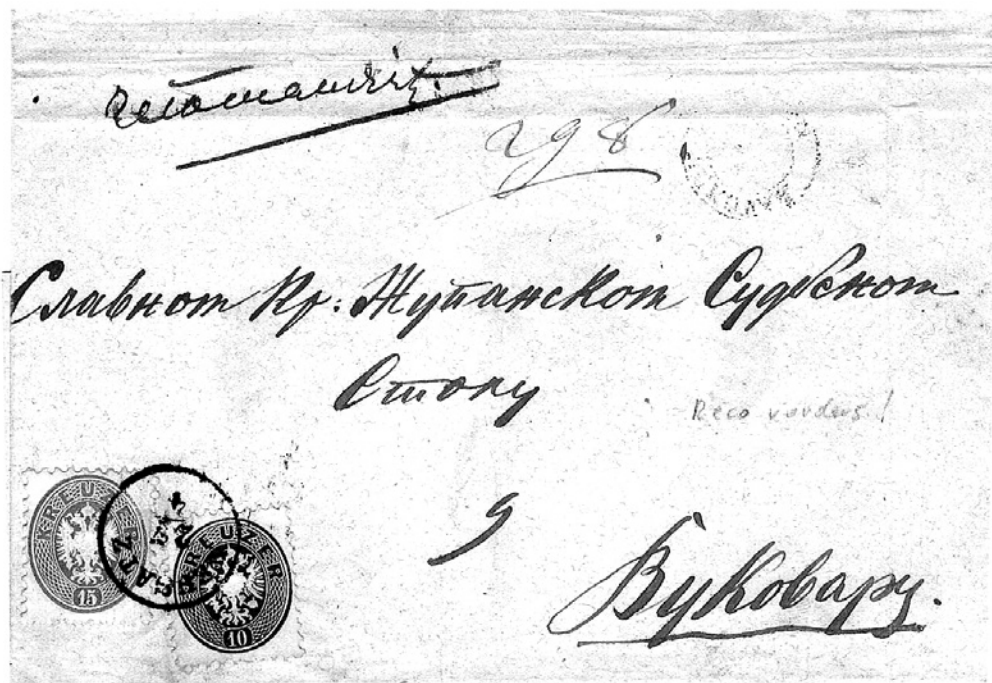 Recomandirt.
298
Славном Кр: Жупанском Судбеном
Столу
Reco
у
Вуковару.
KREUZER
15
KREUZER
10